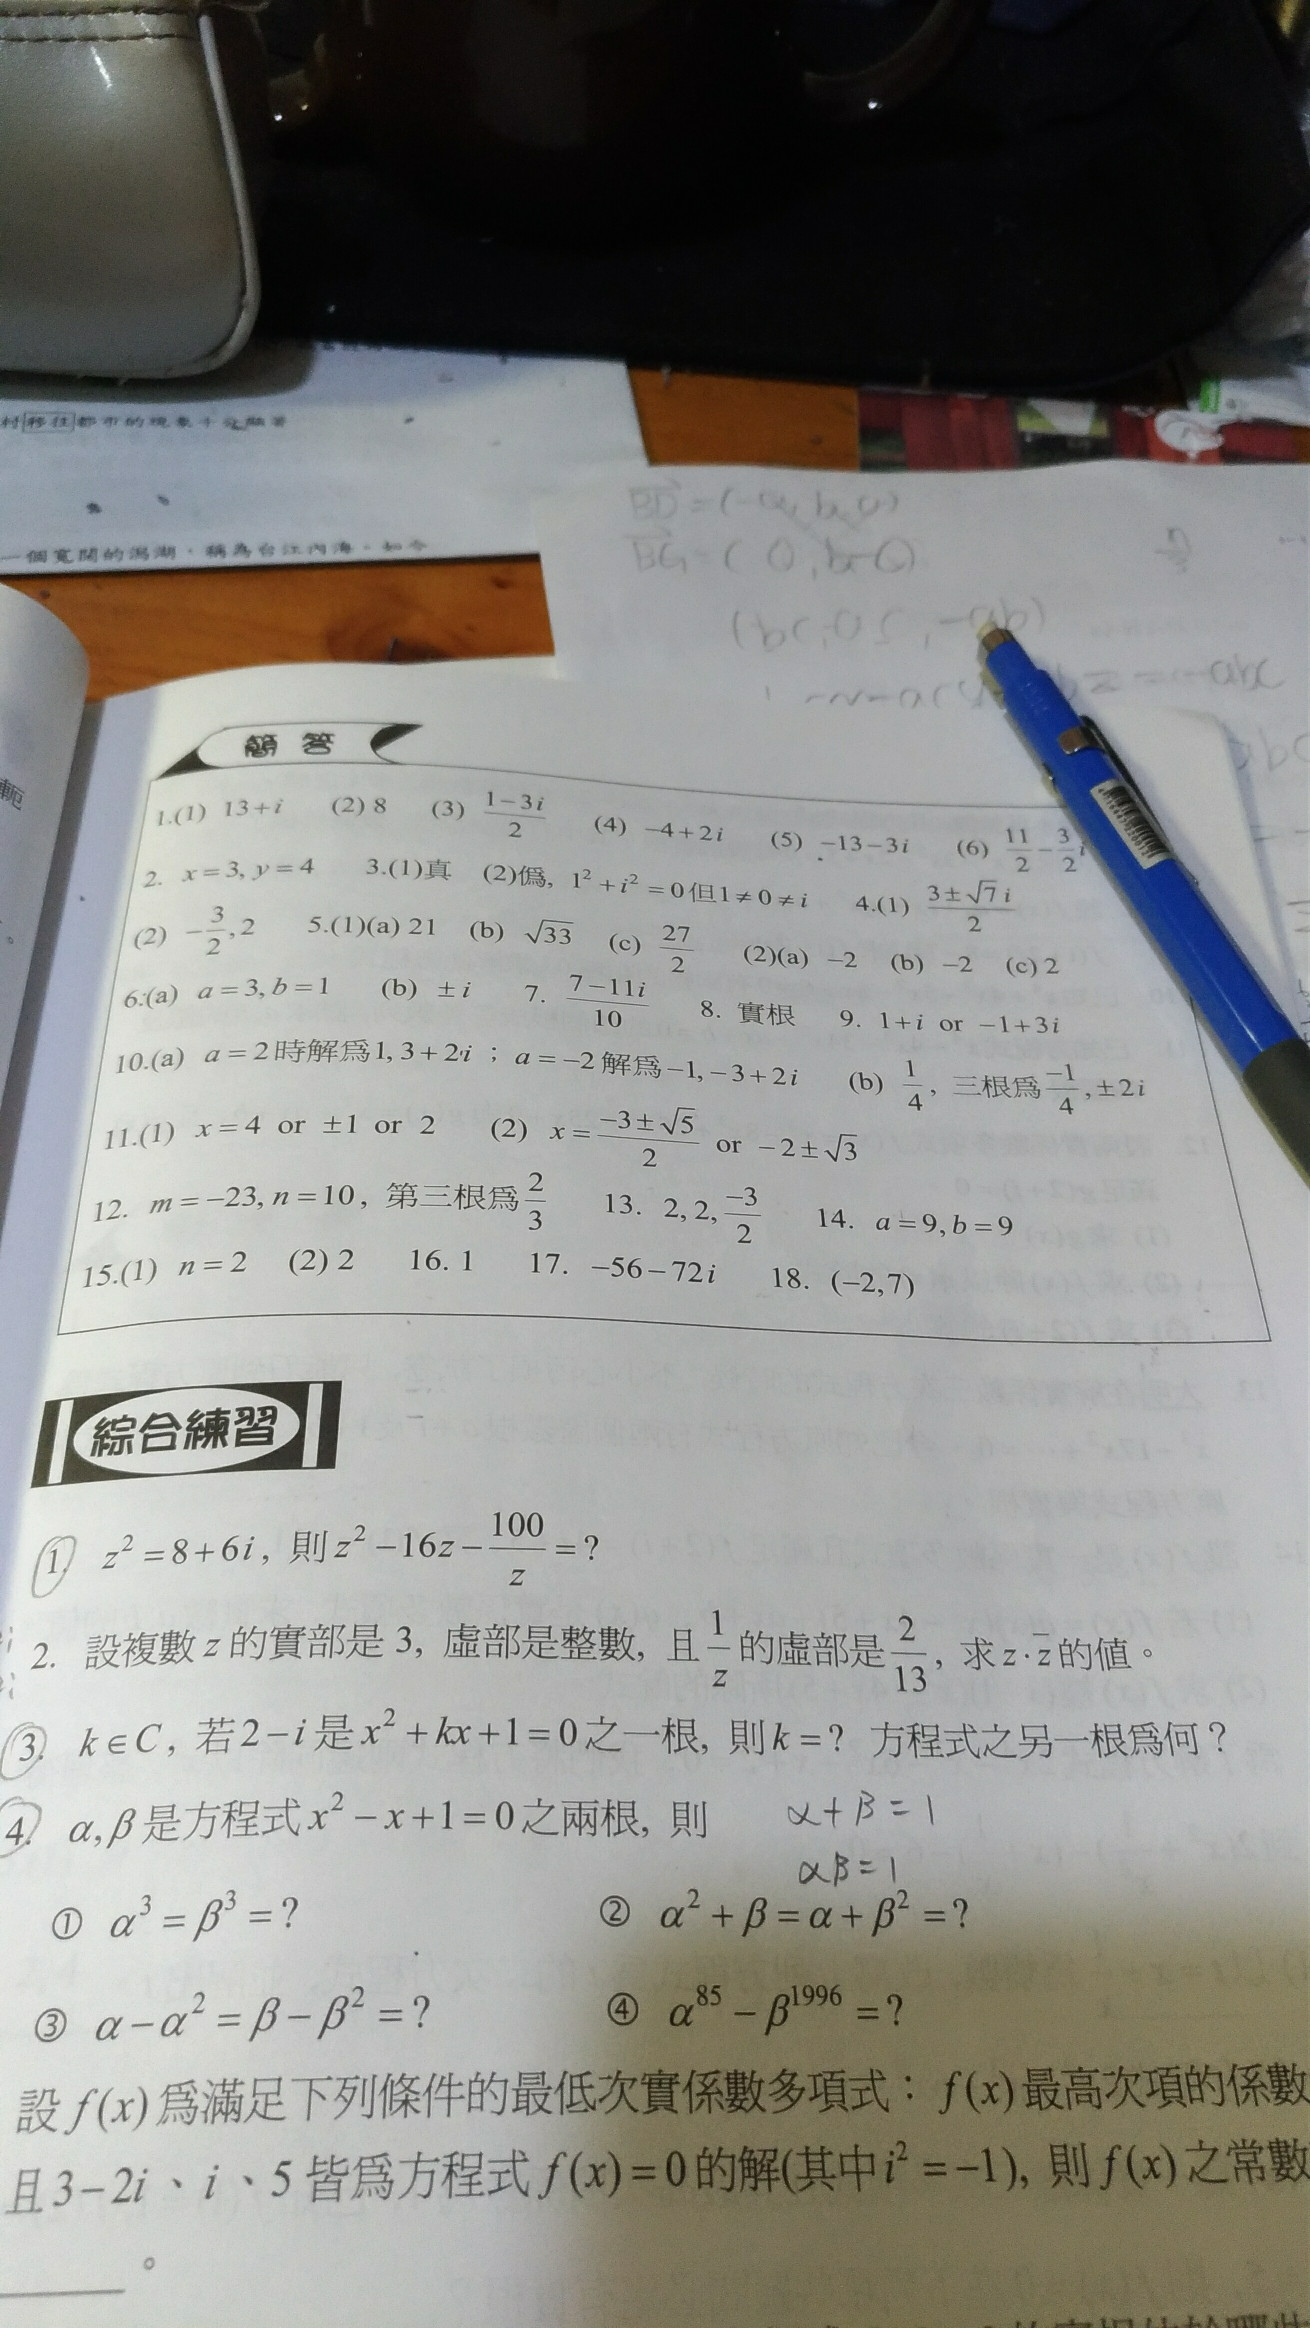 村移往都市的現象十分顯著
一個寬闊的潟湖,稱為台江內海。如今
簡答
1.(1) 13+i (2) 8 (3) (1-3i)/2 (4) -4+2i (5) -13-3i (6) 11/2-3/2i
2. x=3, y=4 3.(1)真 (2)僞, 1²+i²=0但1≠0≠i 4.(1) (3±√7i)/2
(2) -3/2,2 5.(1)(a) 21 (b) √33 (c) 27/2 (2)(a) -2 (b) -2 (c) 2
6.(a) a=3, b=1 (b) ±i 7. (7-11i)/10 8. 實根 9. 1+i or -1+3i
10.(a) a=2時解爲1, 3+2i ; a=-2解爲-1, -3+2i (b) 1/4, 三根爲-1/4, ±2i
11.(1) x=4 or ±1 or 2 (2) x=(-3±√5)/2 or -2±√3
12. m=-23, n=10, 第三根爲2/3 13. 2, 2, -3/2 14. a=9, b=9
15.(1) n=2 (2) 2 16. 1 17. -56-72i 18. (-2,7)
綜合練習
1. z²=8+6i, 則z²-16z-100/z=?
2. 設複數z的實部是3, 虛部是整數, 且1/z的虛部是2/13, 求z·z̄的値。
3. k∈C, 若2-i是x²+kx+1=0之一根, 則k=? 方程式之另一根爲何?
4. α,β是方程式x²-x+1=0之兩根, 則 α+β=1
αβ=1
① α³=β³=? ② α²+β=α+β²=?
③ α-α²=β-β²=? ④ α⁸⁵-β¹⁹⁹⁶=?
設f(x)爲滿足下列條件的最低次實係數多項式:f(x)最高次項的係數
且3-2i、i、5皆爲方程式f(x)=0的解(其中i²=-1), 則f(x)之常數
。